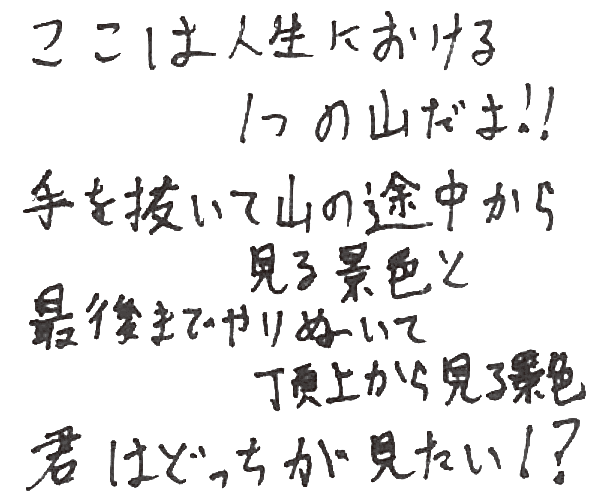 ここは人生における
1つの山だよ!!
手を抜いて山の途中から
見る景色と
最後までやりぬいて
頂上から見る景色
君はどっちが見たい!?